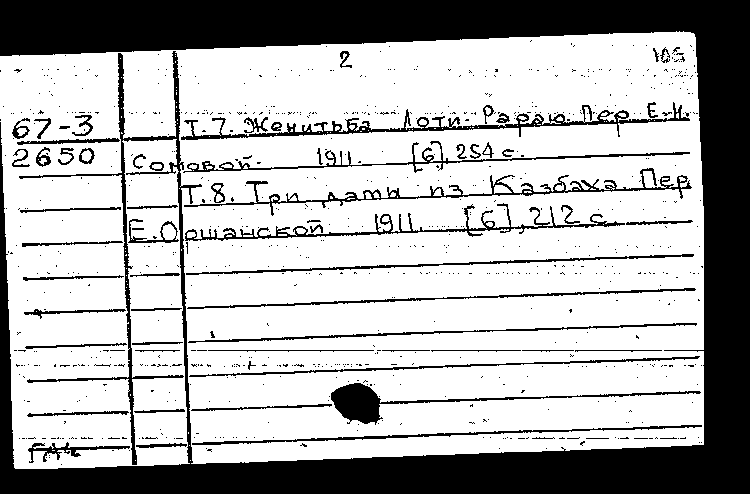 2 105
67-3 Т.7. Женитьба Лоти-Рараю. Пер. Е.И.
2650 Сомовой. 1911. [6], 254 с.
Т.8. Три дамы из Казбаха. Пер.
Е.Оршанской. 1911. [6], 212 с.